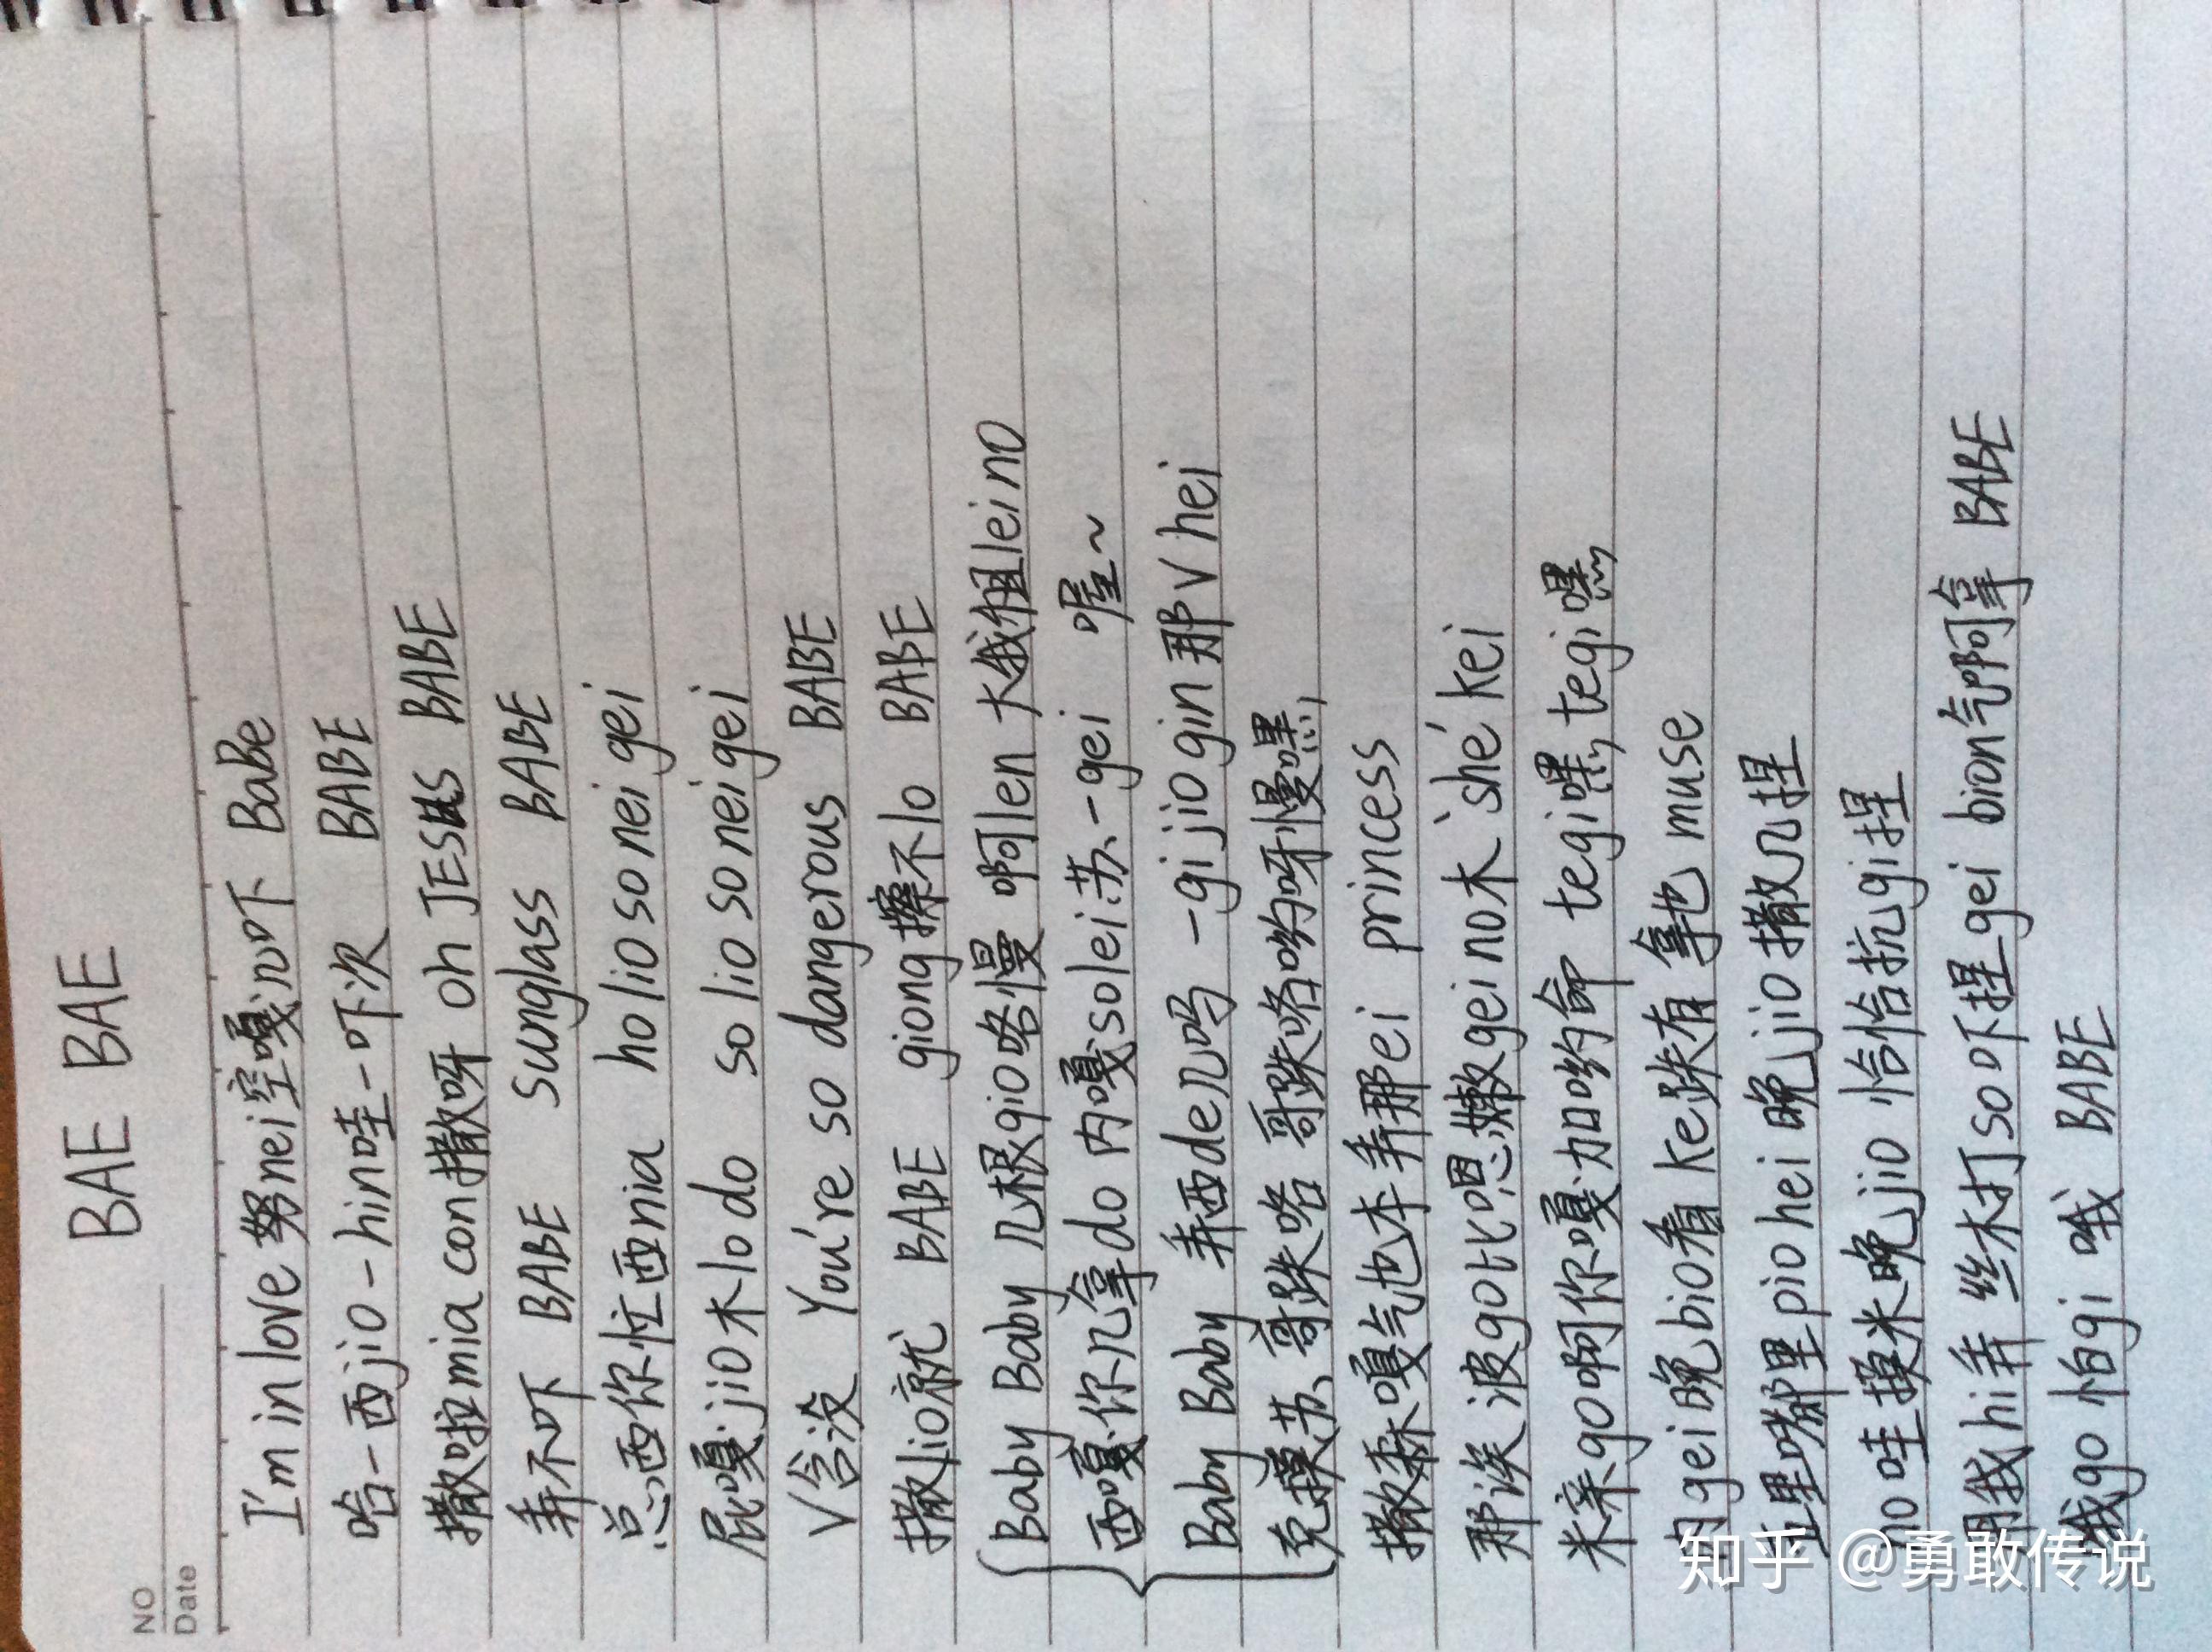 BAE BAE
NO
Date
I'm in love 努nei空嘎几吓 BaBe
哈-西jio-hin哇-吓次 BABE
撒啦mia con撒呀 oh JESUS BABE
弄不吓 BABE sunglass BABE
总西你忙西nia ho lio so nei gei
屁嘎jio木lo do so lio so nei gei
V含没 You're so dangerous BABE
撒lio就 BABE giong擦不lo BABE
Baby Baby 几根gio咯慢 啊len 大俄伽lei no
西嘎你几拿do 内嘎solei苏-gei 喔~
Baby Baby 弄西de几吗 -gi jio gin 那V hei
克摸苏 哥跌咯 哥跌咯哟呀慢嘿
撒森嘎气也本弄那ei princess
那诶 波go比嗯嫩gei no木`shé kei
米亲go啊你嘎加哟命 tegi嘿,tegi嘿,
内gei晚bio看ke跌有拿也muse
里嘟里pio hei晚jio撒几捏
no哇摸米晚jio恰恰抗gi捏
用我hi弄 丝木打so吓捏gei bion气阿拿 BABE
俄go怕gi 哦 BABE
知乎 @勇敢传说